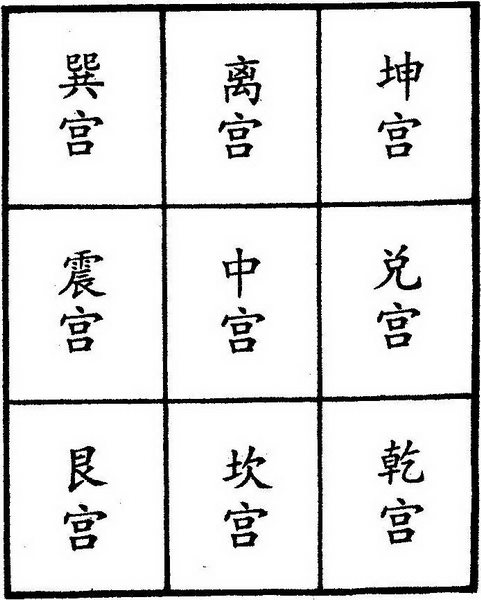 巽宫
离宫
坤宫
震宫
中宫
兑宫
艮宫
坎宫
乾宫